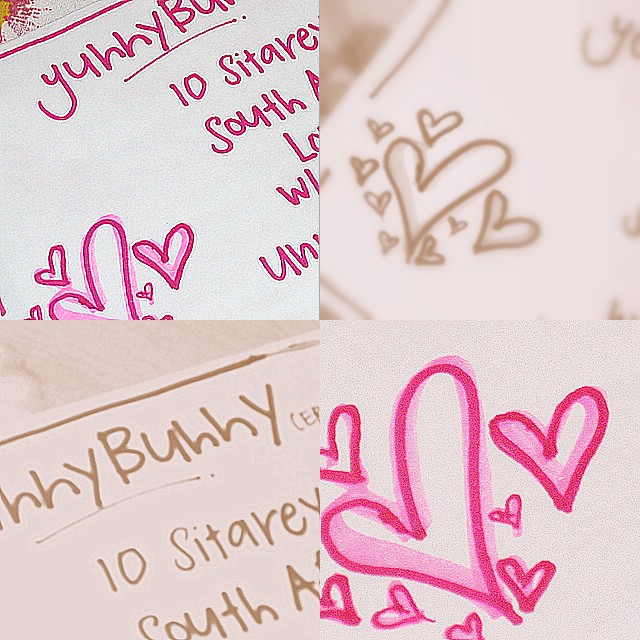 yuhhyBuh
10 Sitarey
South A
Lo
Uh
hhyBuhhy (CER
10 Sitarey
South A